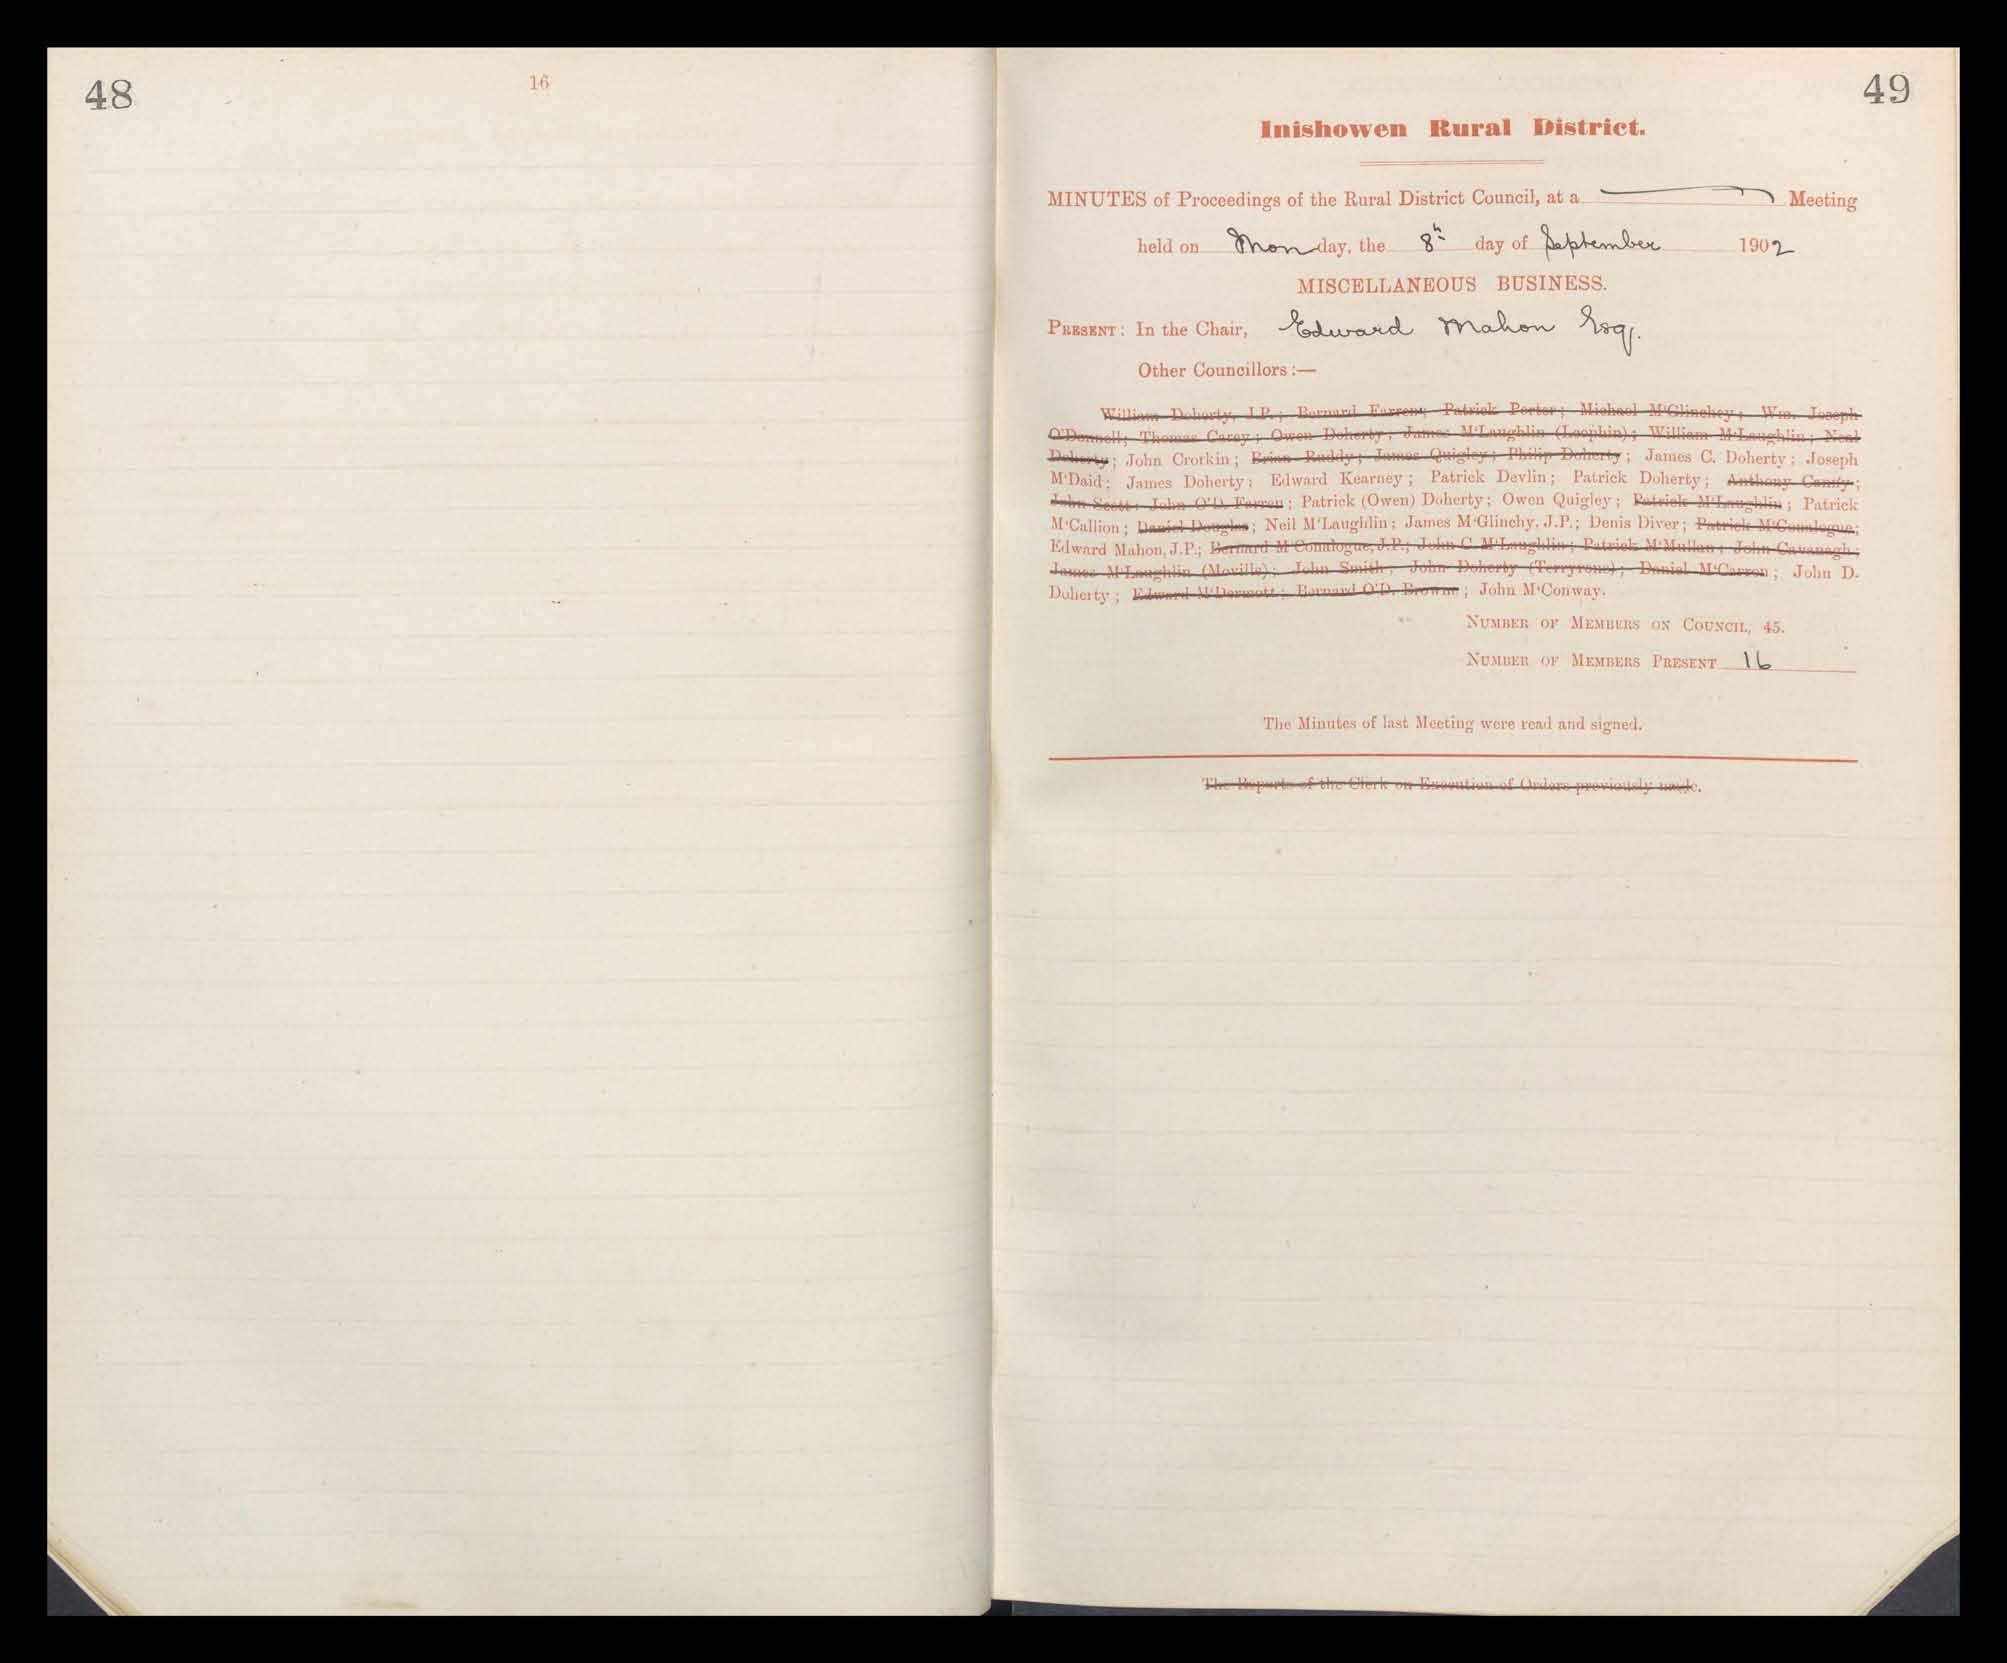 48
16
49
Inishowen Rural District.
MINUTES of Proceedings of the Rural District Council, at a Meeting
held on Monday, the 8th day of September 1902
MISCELLANEOUS BUSINESS.
PRESENT: In the Chair, Edward Mahon Esq.
Other Councillors:—
William Doherty, J.P.; Bernard Farren; Patrick Porter; Michael M'Glinchey; Wm. Joseph
O'Donnell; Thomas Carey; Owen Doherty; James M'Laughlin (Leophin); William M'Laughlin; Neal
Doherty; John Crorkin; Brian Ruddy; James Quigley; Philip Doherty; James C. Doherty; Joseph
M'Daid; James Doherty; Edward Kearney; Patrick Devlin; Patrick Doherty; Anthony Canny;
John Scott; John O'D. Farren; Patrick (Owen) Doherty; Owen Quigley; Patrick M'Laughlin; Patrick
M'Callion; Daniel Douglas; Neil M'Laughlin; James M'Glinchy, J.P.; Denis Diver; Patrick M'Conalogue;
Edward Mahon, J.P.; Bernard M'Conalogue, J.P.; John C. M'Laughlin; Patrick M'Mullan; John Cavanagh;
James M'Laughlin (Moville); John Smith; John Doherty (Terryrone); Daniel M'Carron; John D.
Doherty; Edward M'Dermott; Bernard O'D. Browne; John M'Conway.
NUMBER OF MEMBERS ON COUNCIL, 45.
NUMBER OF MEMBERS PRESENT 16
The Minutes of last Meeting were read and signed.
The Reports of the Clerk on Execution of Orders previously made.